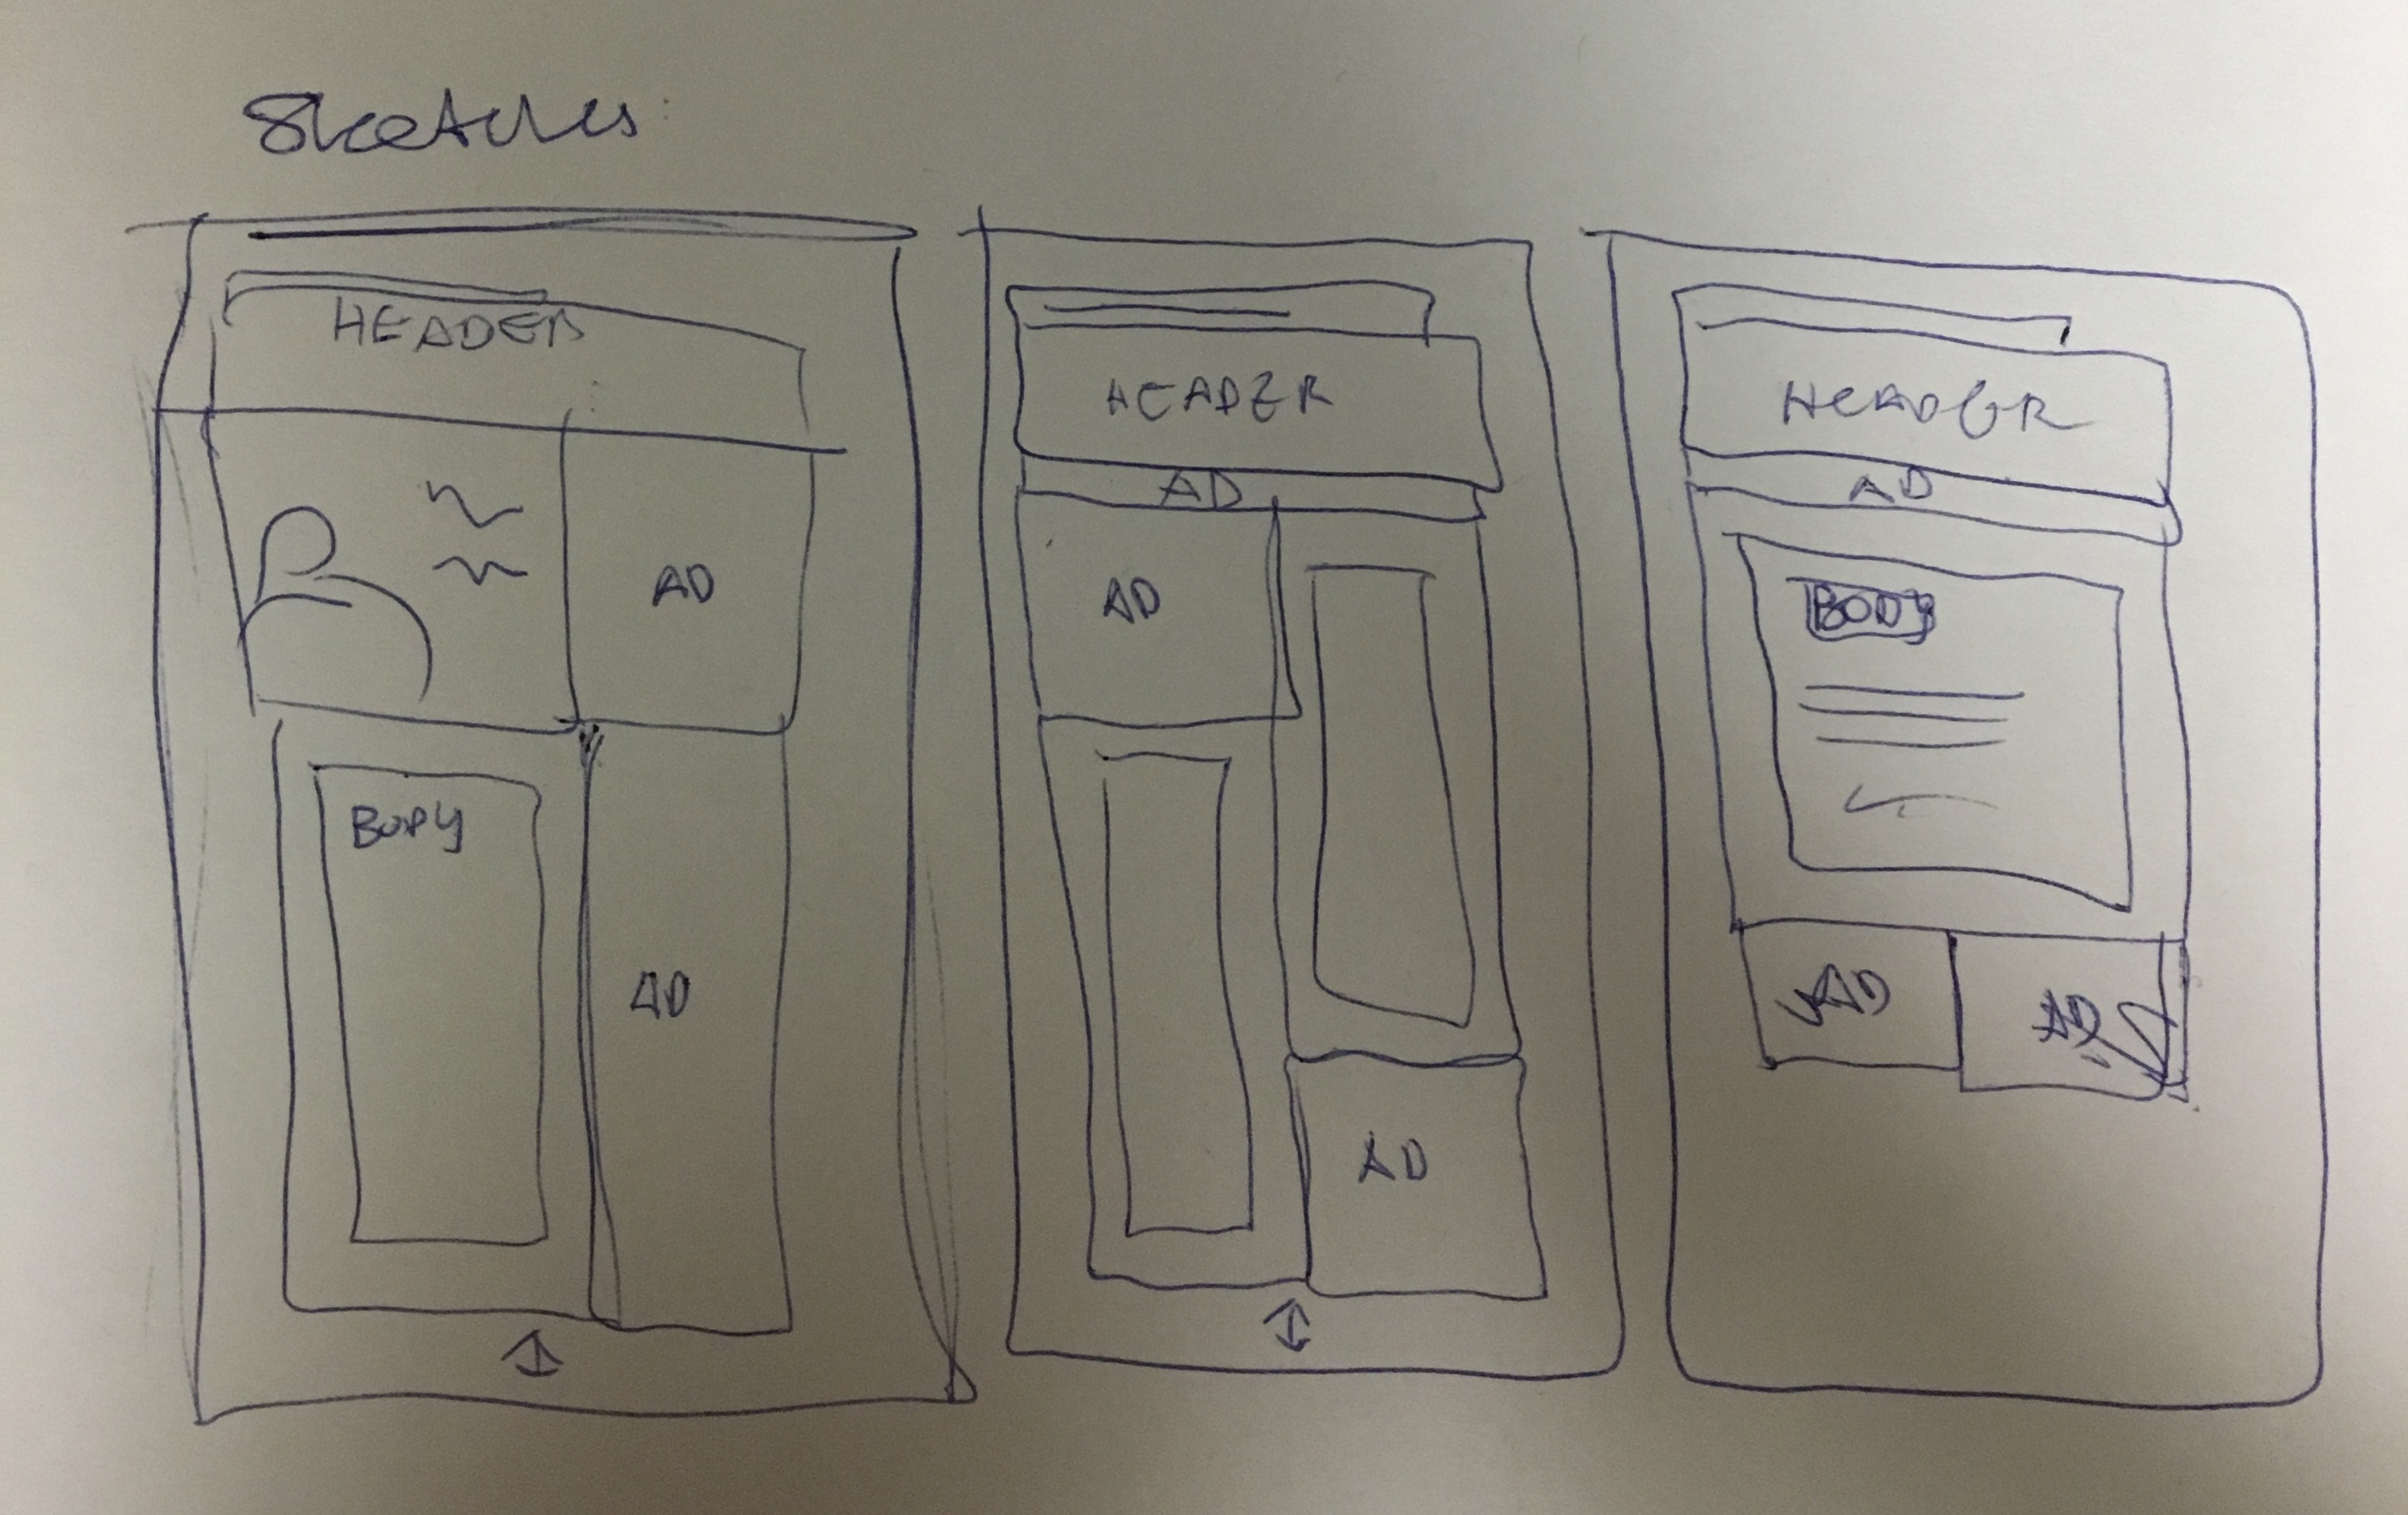 Sketches
HEADER
AD
BODY
AD
HEADER
AD
AD
AD
HEADER
AD
BODY
AD
AD